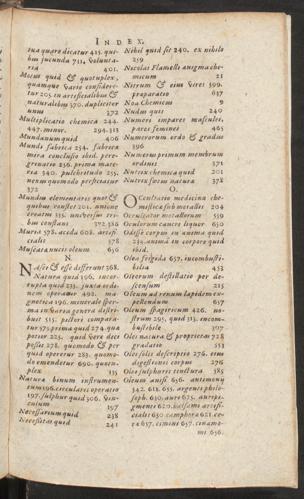 INDEX.
sua quare dicatur 425. quibus jucunda 711. Voluntaria 401.
Motus quid & quotuplex,
quamque vario considere-
tur 205. in artificialibus &
naturalibus 370. dupliciter
372
Multiplicatio chemica 244.
447. minor. 294. 313
Mundanum quid 406
Mundi fabrica 254. fabricæ
mera conclusio ibid.
ria 340. pulchritudo 255.
372
Mundus elementaris quot &
quibus constet 201. unione
creatus 335. universus
bus constans 372. 386
Muria 378. acida 608. artifi-
cialis 378
Muscatæ nucis oleum 636
N.
Nasci & esse differunt 368.
Natura quid 196.
tupla quid 235. juxta ordi-
nem operatur 492.
gnetica 196. mineralis
575. prima quid 274. qua
potior 225. quid vere dici
possit 278. quomodo & per
quid operetur 283. quomo-
do emendetur 690.
plex 135
Natura binum instrumen-
tum 196. circularis operatio
197. sulphur quid 306.
culum 197
Necessarium quid 238
Necessitas quid 241
Nihil quid sit 240. ex nihilo
259
Nicolai Flamelli ænigma che-
micum 21
Nitrum & ejus vires 599.
præparatio 637
Noa Chemicus 9
Nudus quis 240
Numeri impares masculei,
pares feminei 465
Numerorum ordo & gradus
396
Numerus primus membrum
ordinis 371
Nutrix chemica quid 201
Nutrix forma natura 378
O.
Occultatio medicina che-
mistica sub metallis 204
Occultator metallorum 559
Oculorum cancer liquor 650
Odisse corpus an anima quid
239. anima in corpore quid
ibid.
Olea frigida 657. incombusti-
bilia 453
Oleorum destillatio per de-
scensum 215
Oleum ad renum lapidem ex-
pellendum 637
Oleum fragicicum 426.
strum 295. quid 313. incom-
bustibile 307
Olei natura & proprietas 728
gradatio 353
Olei solis descriptio 276. ejus
digestionis corpus 276
Olei sulphuris tinctura 385
Oleum anisi 636. antimonij
342. 611. 655. argenti philo-
soph. 630. auri 625. auripi-
gmenti 620. balsami artifi-
cialis 630. camphoræ 621.
ra 637. cimini 657. cinamo-
mi 636.